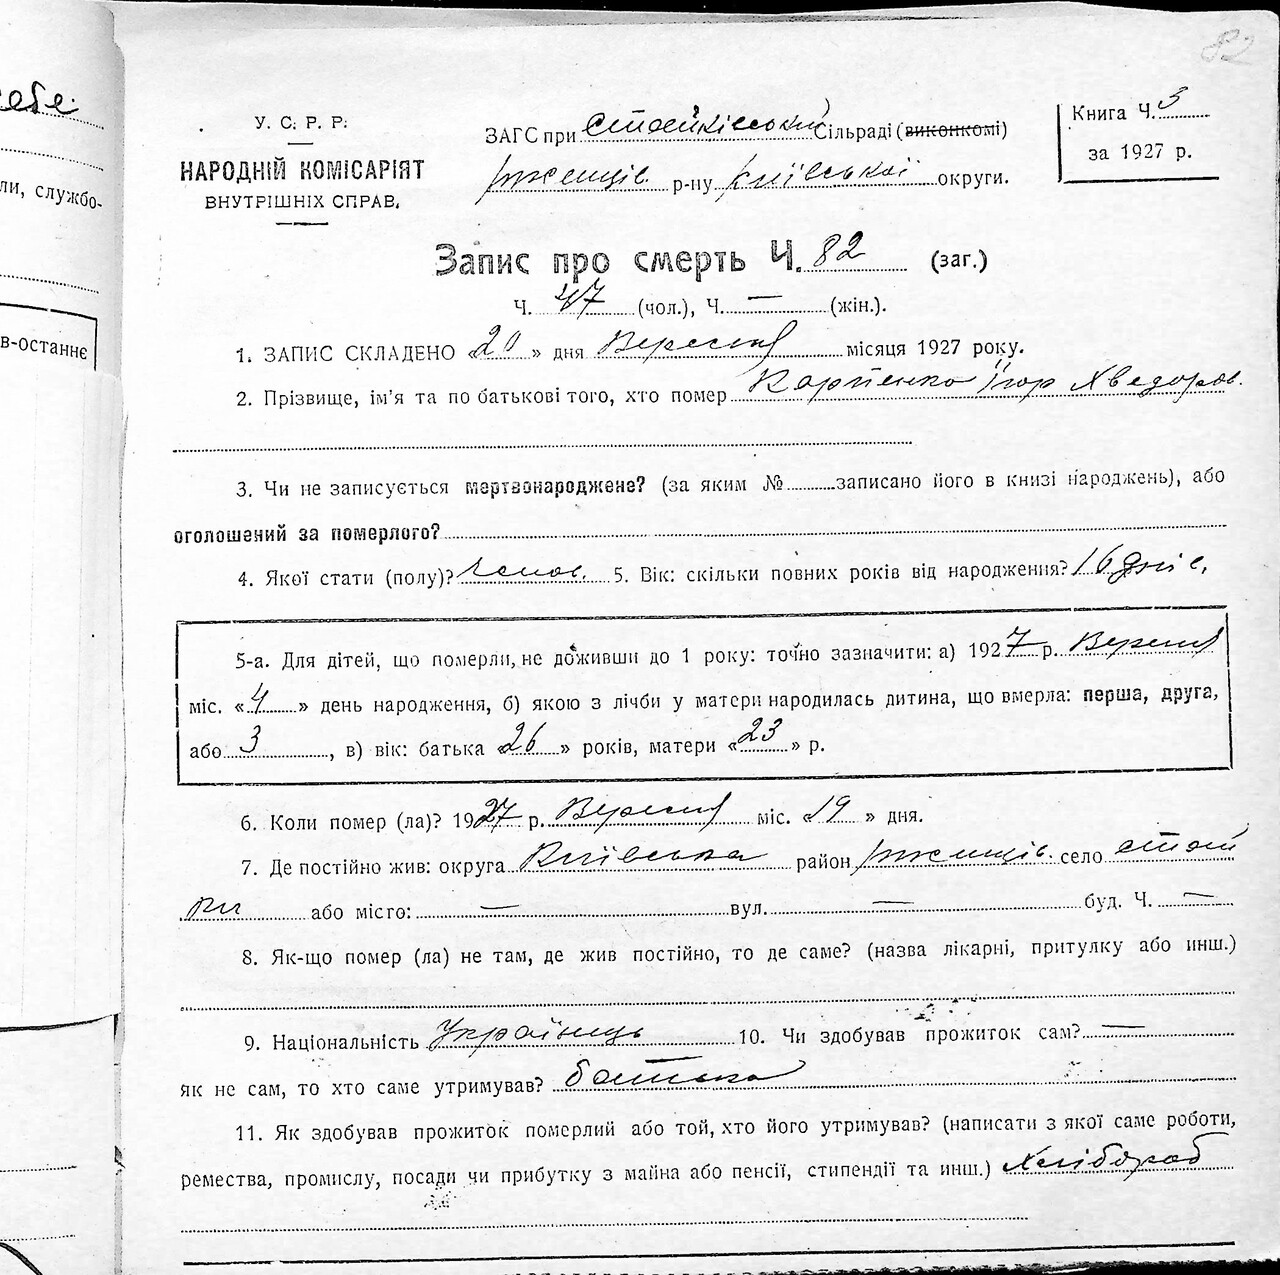 82
себе
ли, службо-
в-останнє
У. С. Р. Р.
НАРОДНІЙ КОМІСАРІЯТ
ВНУТРІШНІХ СПРАВ.
ЗАГС при Стайківський Сільраді (виконкомі)
Ржищів р-ну Київської округи.
Книга Ч. 3
за 1927 р.
Запис про смерть Ч. 82 (заг.)
Ч. 47 (чол.), Ч. — (жін.).
1. ЗАПИС СКЛАДЕНО «20» дня Вересня місяця 1927 року.
2. Прізвище, ім'я та по батькові того, хто помер Карпенко Ігор Хведоров.
3. Чи не записується мертвонароджене? (за яким № записано його в книзі народжень), або
оголошений за померлого?
4. Якої стати (полу)? чолов. 5. Вік: скільки повних років від народження? 16 днів,
5-а. Для дітей, що померли, не доживши до 1 року: точно зазначити: а) 1927 р. Вересня
міс. «4» день народження, б) якою з лічби у матери народилась дитина, що вмерла: перша, друга,
або 3, в) вік: батька «26» років, матери «23» р.
6. Коли помер (ла)? 1927 р. Вересня міс. «19» дня.
7. Де постійно жив: округа Київська район Ржищів. село Стай
ки або місто: — вул. — буд. Ч. —
8. Як-що помер (ла) не там, де жив постійно, то де саме? (назва лікарні, притулку або инш.)
9. Національність Українць 10. Чи здобував прожиток сам? —
як не сам, то хто саме утримував? батька
11. Як здобував прожиток померлий або той, хто його утримував? (написати з якої саме роботи,
ремества, промислу, посади чи прибутку з майна або пенсії, стипендії та инш.) Хлібороб